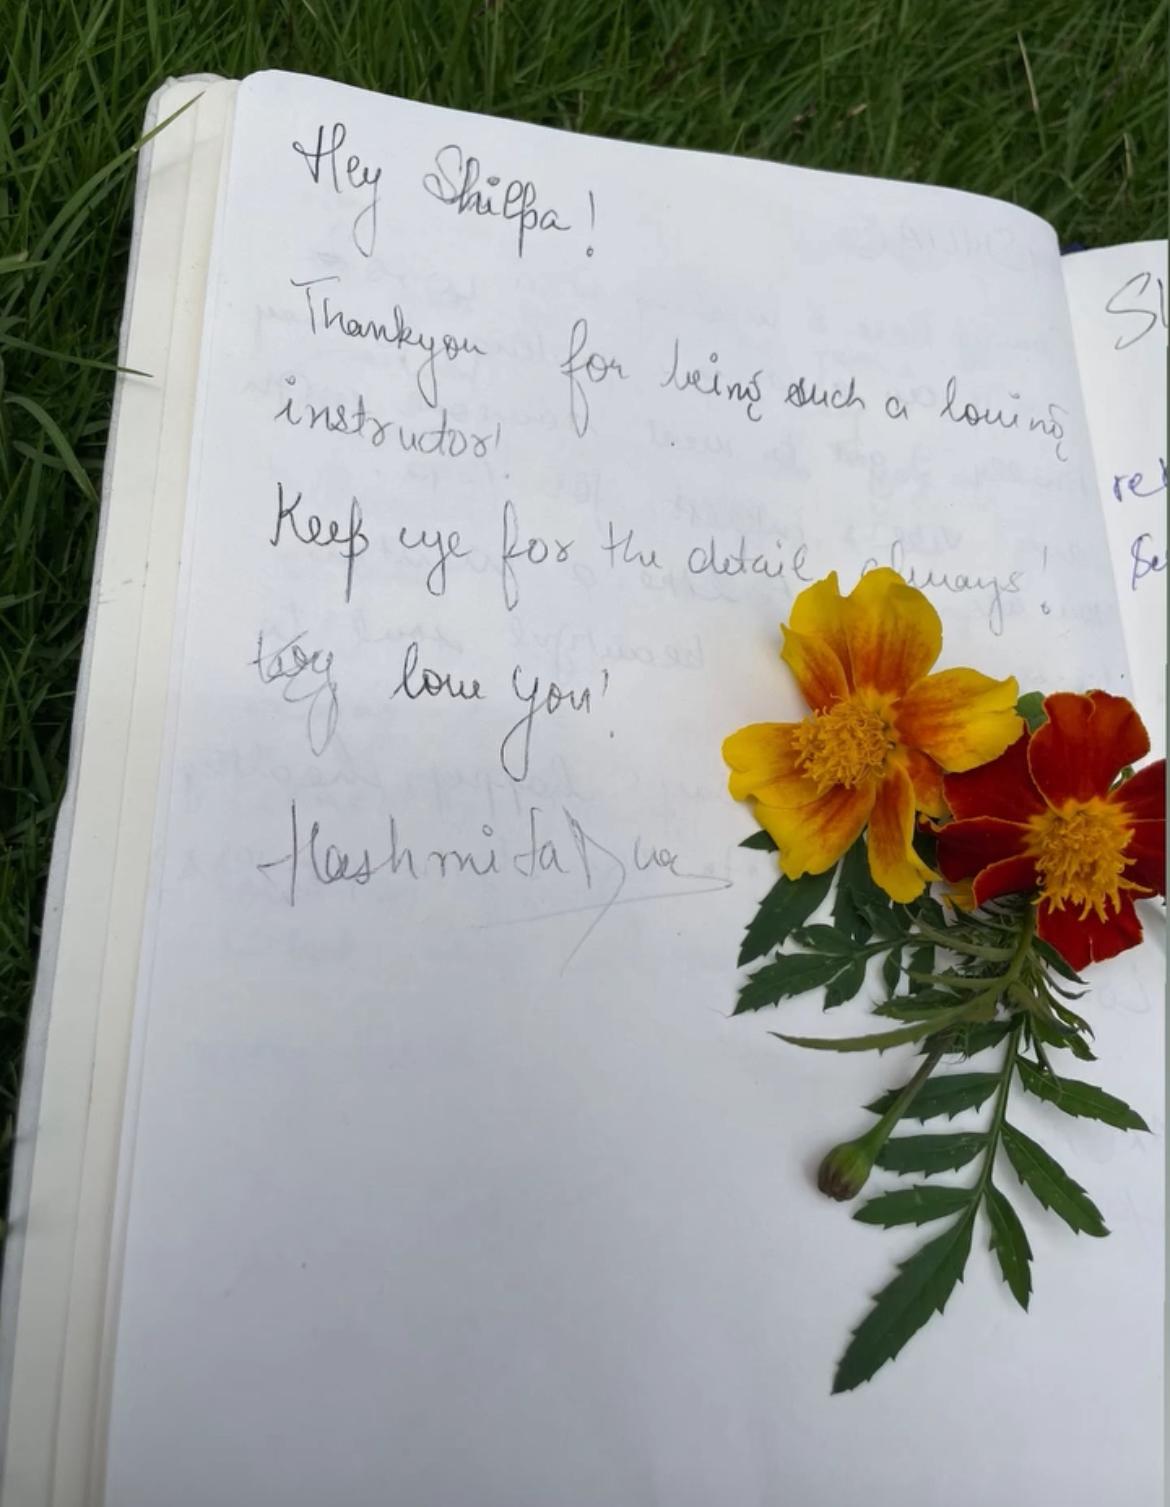 Hey Shilpa!
Thankyou for being such a loving
instructor!
Keep eye for the detail always!
love you!
Hashmita Dua